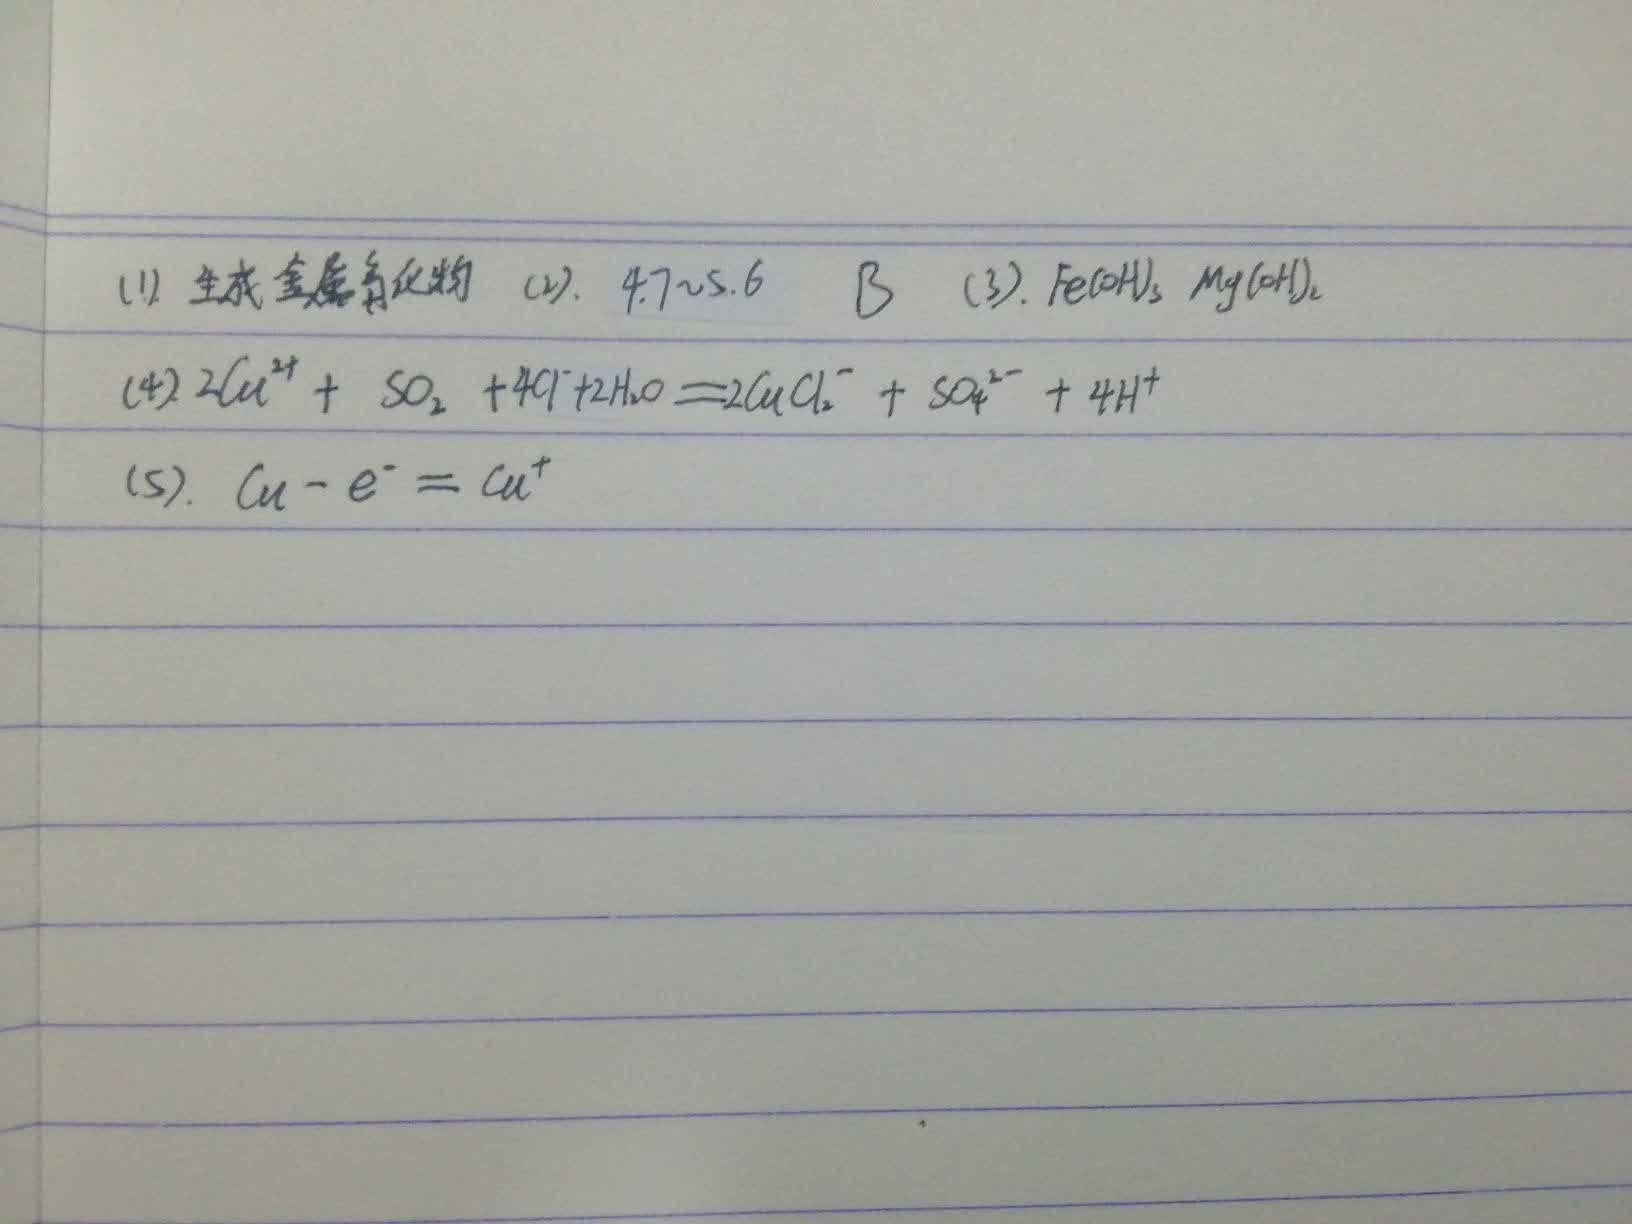 (1) 生成金属氧化物 (2). 4.7~5.6 B (3). Fe(OH)₃ Mg(OH)₂
(4) 2Cu²⁺ + SO₂ + 4Cl⁻ + 2H₂O = 2CuCl₂⁻ + SO₄²⁻ + 4H⁺
(5). Cu - e⁻ = Cu⁺